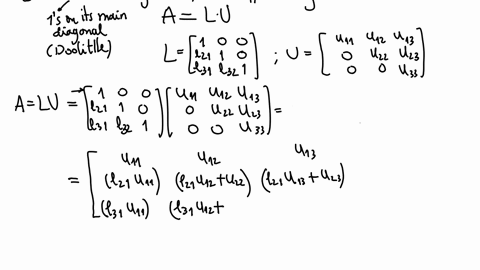 1's on its main
diagonal
(Doolittle)
A = L·U
L = [1 0 0; l21 1 0; l31 l32 1] ; U = [u11 u12 u13; 0 u22 u23; 0 0 u33]
A = LU = [1 0 0; l21 1 0; l31 l32 1] [u11 u12 u13; 0 u22 u23; 0 0 u33] =
= [u11 u12 u13
(l21 u11) (l21 u12 + u22) (l21 u13 + u23)
(l31 u11) (l31 u12 +